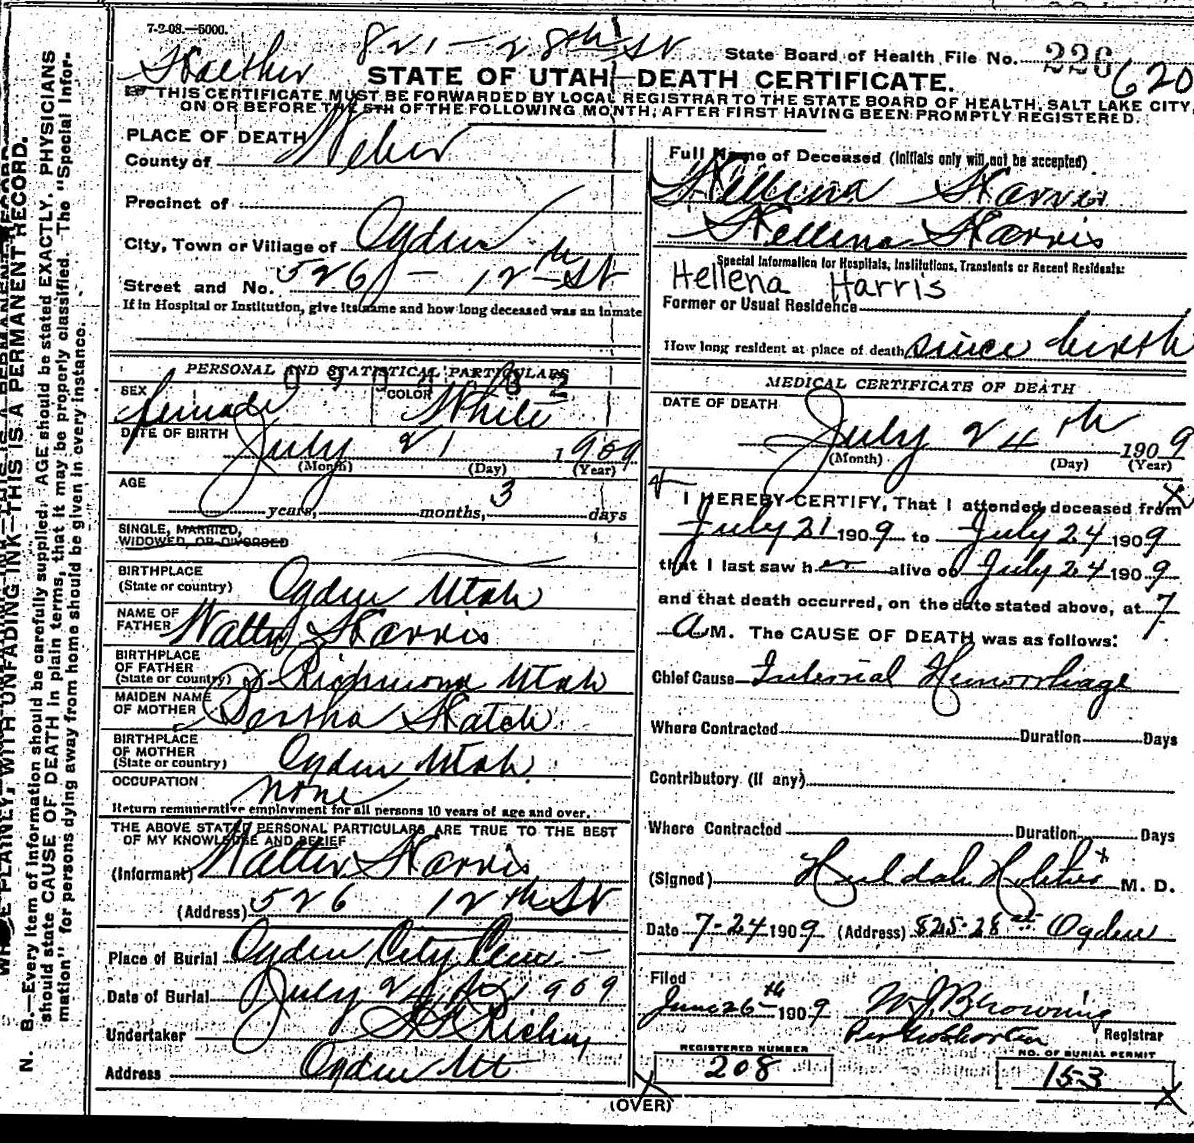 7-2-08.—5000.
821 - 28th St
State Board of Health File No. 226 620
STATE OF UTAH—DEATH CERTIFICATE.
THIS CERTIFICATE MUST BE FORWARDED BY LOCAL REGISTRAR TO THE STATE BOARD OF HEALTH, SALT LAKE CITY,
ON OR BEFORE THE 5TH OF THE FOLLOWING MONTH, AFTER FIRST HAVING BEEN PROMPTLY REGISTERED.
PLACE OF DEATH
County of Weber
Precinct of
City, Town or Village of Ogden
Street and No. 526 - 12th St
If in Hospital or Institution, give its name and how long deceased was an inmate
PERSONAL AND STATISTICAL PARTICULARS
SEX female
COLOR White
DATE OF BIRTH July 21 1909
(Month) (Day) (Year)
AGE
years, months, 3 days
SINGLE, MARRIED,
WIDOWED, OR DIVORCED
BIRTHPLACE
(State or country) Ogden Utah
NAME OF
FATHER Walter Harris
BIRTHPLACE
OF FATHER
(State or country) Richmond Utah
MAIDEN NAME
OF MOTHER Bertha Hatch
BIRTHPLACE
OF MOTHER
(State or country) Ogden Utah
OCCUPATION none
Return remunerative employment for all persons 10 years of age and over.
THE ABOVE STATED PERSONAL PARTICULARS ARE TRUE TO THE BEST
OF MY KNOWLEDGE AND BELIEF
(Informant) Walter Harris
(Address) 526 12th St
Place of Burial Ogden City Cem -
Date of Burial July 24 1909
Undertaker
Address Ogden Ut
Full Name of Deceased (Initials only will not be accepted)
Hellena Harris
Hellena Harris
Special Information for Hospitals, Institutions, Transients or Recent Residents:
Hellena Harris
Former or Usual Residence
How long resident at place of death since birth
MEDICAL CERTIFICATE OF DEATH
DATE OF DEATH
July 24th 1909
(Month) (Day) (Year)
I HEREBY CERTIFY, That I attended deceased from
July 21 1909 to July 24 1909
that I last saw her alive on July 24 1909
and that death occurred, on the date stated above, at 7
A M. The CAUSE OF DEATH was as follows:
Chief Cause Internal Hemorrhage
Where Contracted Duration Days
Contributory (If any)
Where Contracted Duration Days
(Signed) Huldah M. D.
Date 7-24 1909 (Address) 825-28 st Ogden
Filed
June 26th 1909 W J Browning
Registrar
REGISTERED NUMBER
208
NO. OF BURIAL PERMIT
153
(OVER)
WRITE PLAINLY, WITH UNFADING INK—THIS IS A PERMANENT RECORD.
N. B.—Every item of information should be carefully supplied. AGE should be stated EXACTLY. PHYSICIANS
should state CAUSE OF DEATH in plain terms, that it may be properly classified. The "Special Infor-
mation" for persons dying away from home should be given in every instance.